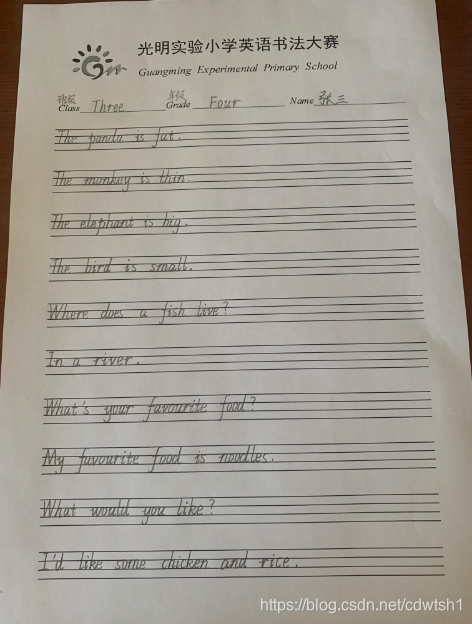 光明实验小学英语书法大赛
Guangming Experimental Primary School
班级 年级
Class Three Grade Four Name 张三
The panda is fat.
The monkey is thin.
The elephant is big.
The bird is small.
Where does a fish live?
In a river.
What's your favourite food?
My favourite food is noodles.
What would you like?
I'd like some chicken and rice.
https://blog.csdn.net/cdwtsh1